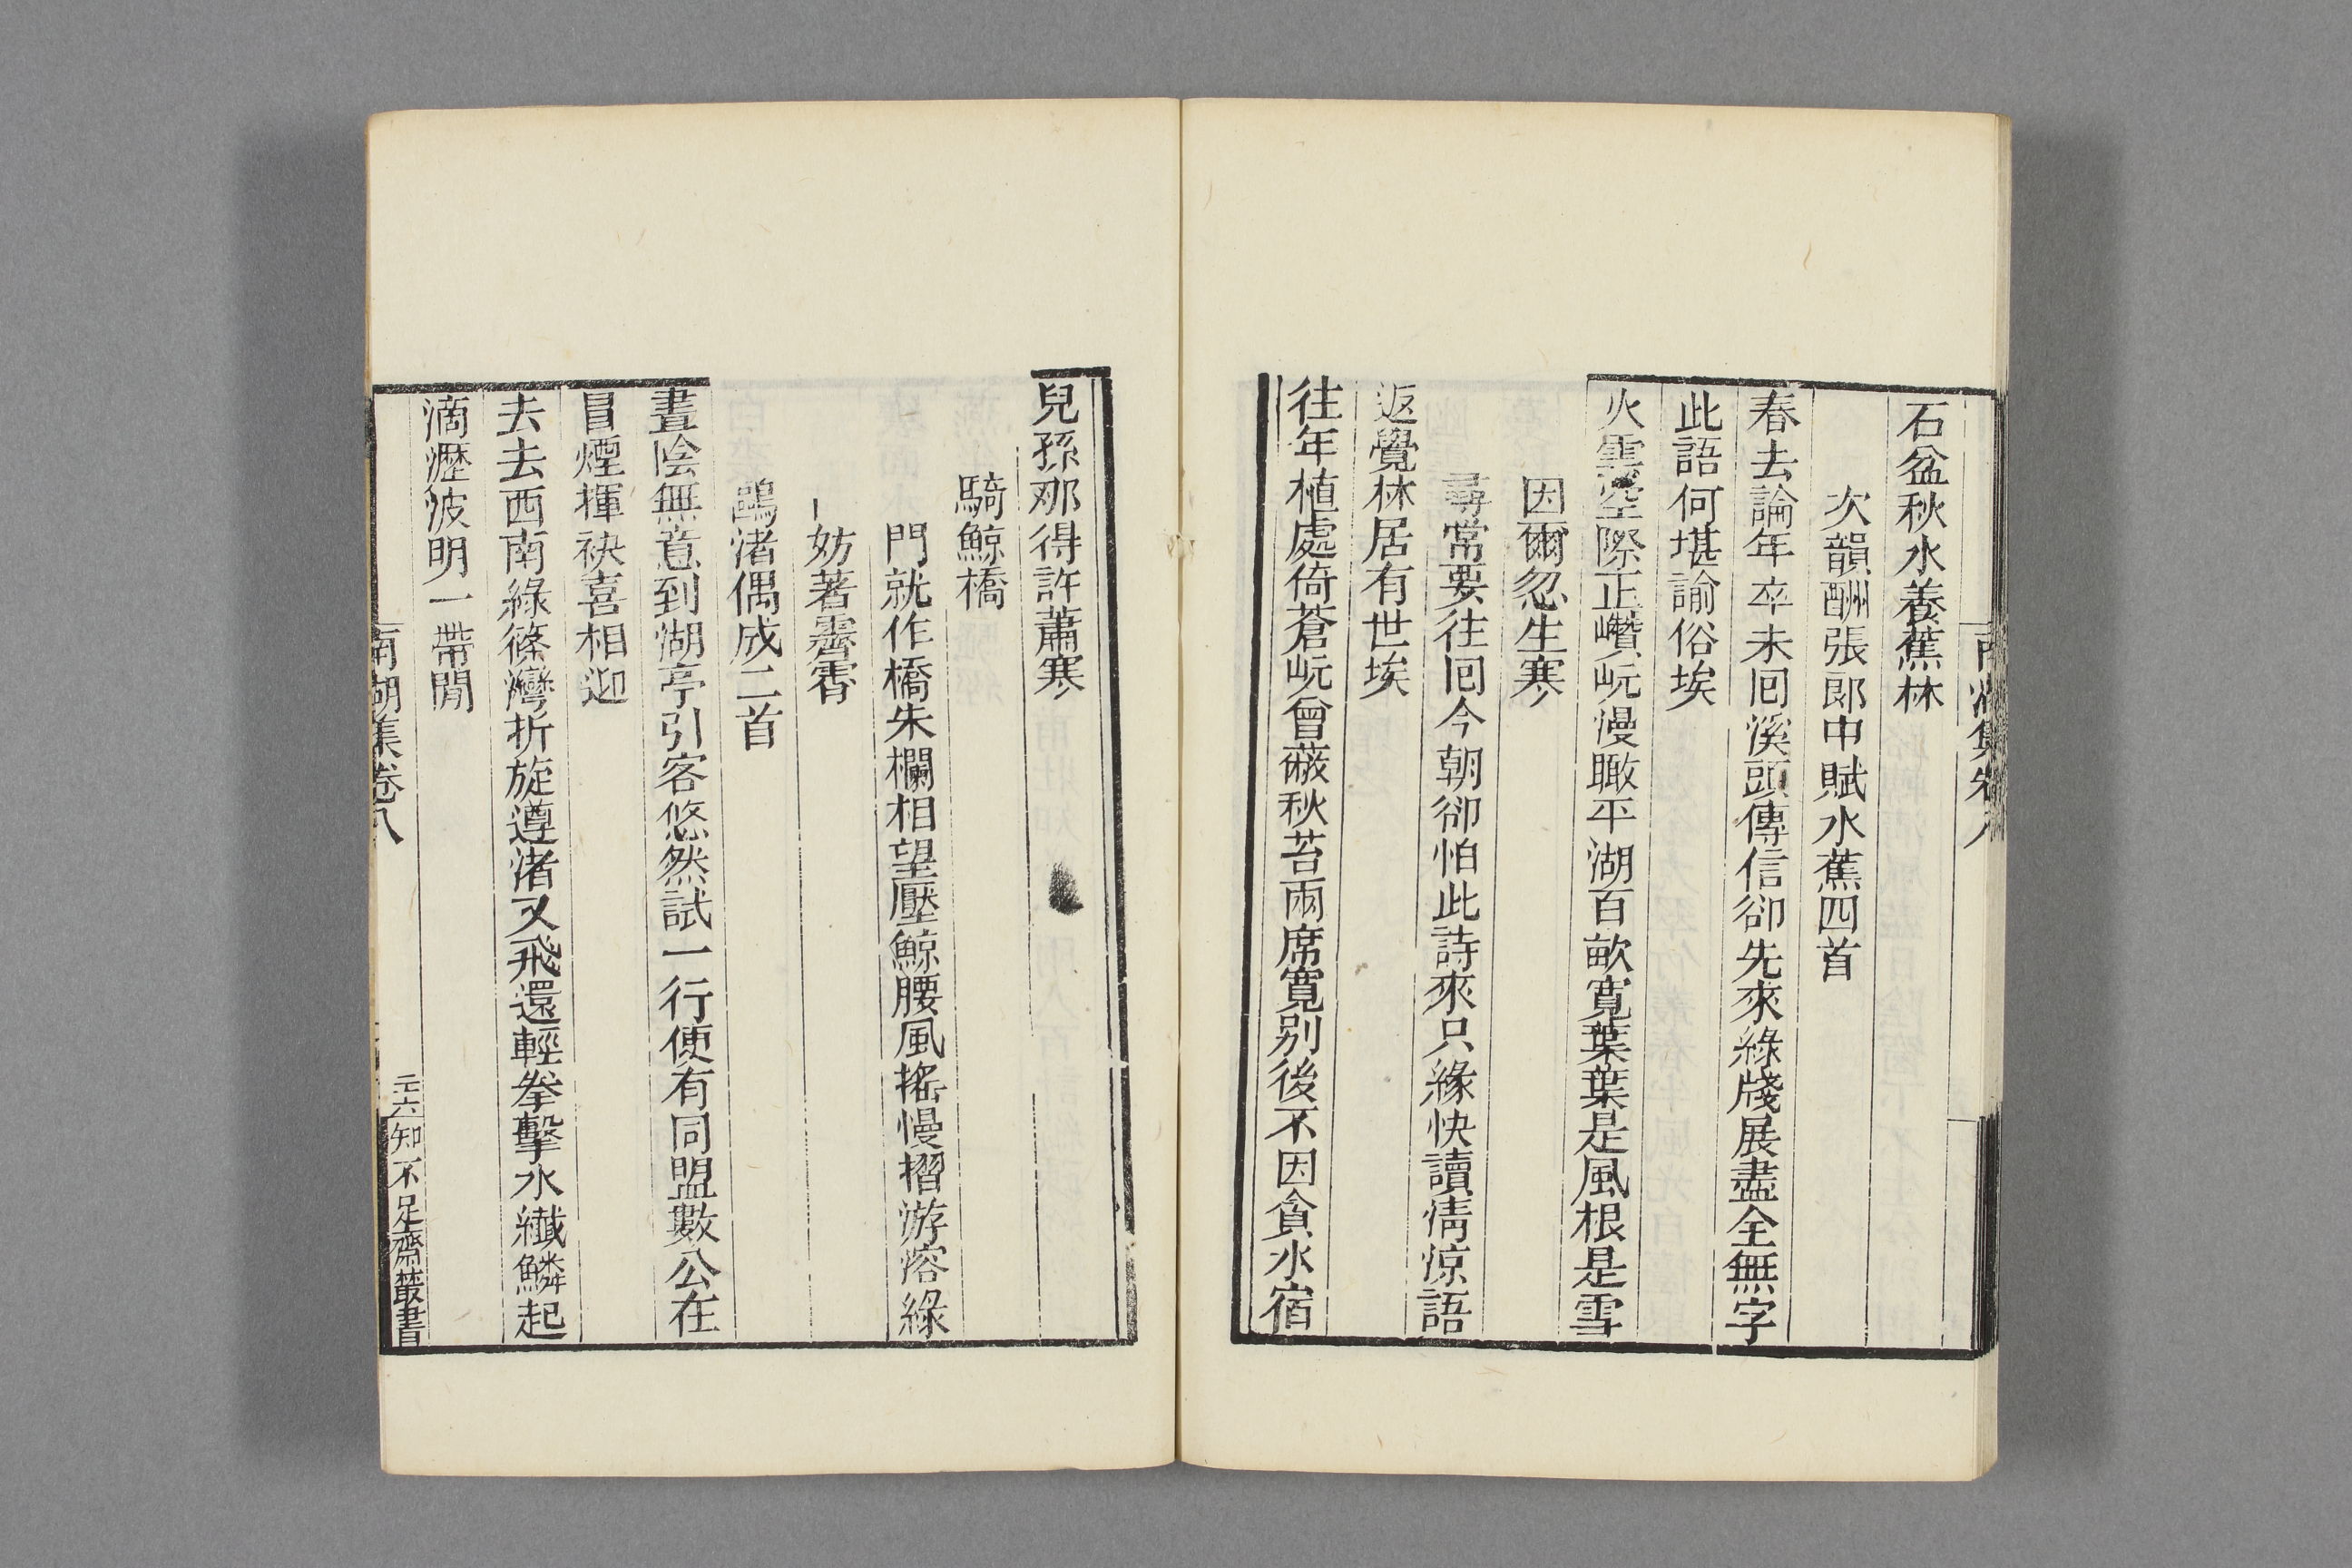 石盆秋水養蕉林
次韻酬張郎中賦水蕉四首
春去論年卒未囘溪頭傳信卻先來綠牋展盡全無字
此語何堪諭俗埃
火雲空際正巑岏漫瞰平湖百畝寬葉葉是風根是雪
因爾忽生寒
尋常要往囘今朝卻怕此詩來只緣快讀淸凉語
返覺林居有世埃
往年植處倚蒼岏曾蔽秋苔兩席寬别後不因貪水宿
兒孫那得許蕭寒
騎鯨橋
門就作橋朱欄相望壓鯨腰風搖慢摺游溶綠
妨著霽霄
鷗渚偶成二首
晝陰無意到湖亭引客悠然試一行便有同盟數公在
冒煙揮袂喜相迎
去去西南綠篠灣折旋遵渚又飛還輕拳擊水纖鱗起
滴瀝波明一帶閒
南湖集卷八
二六
知不足齋叢書